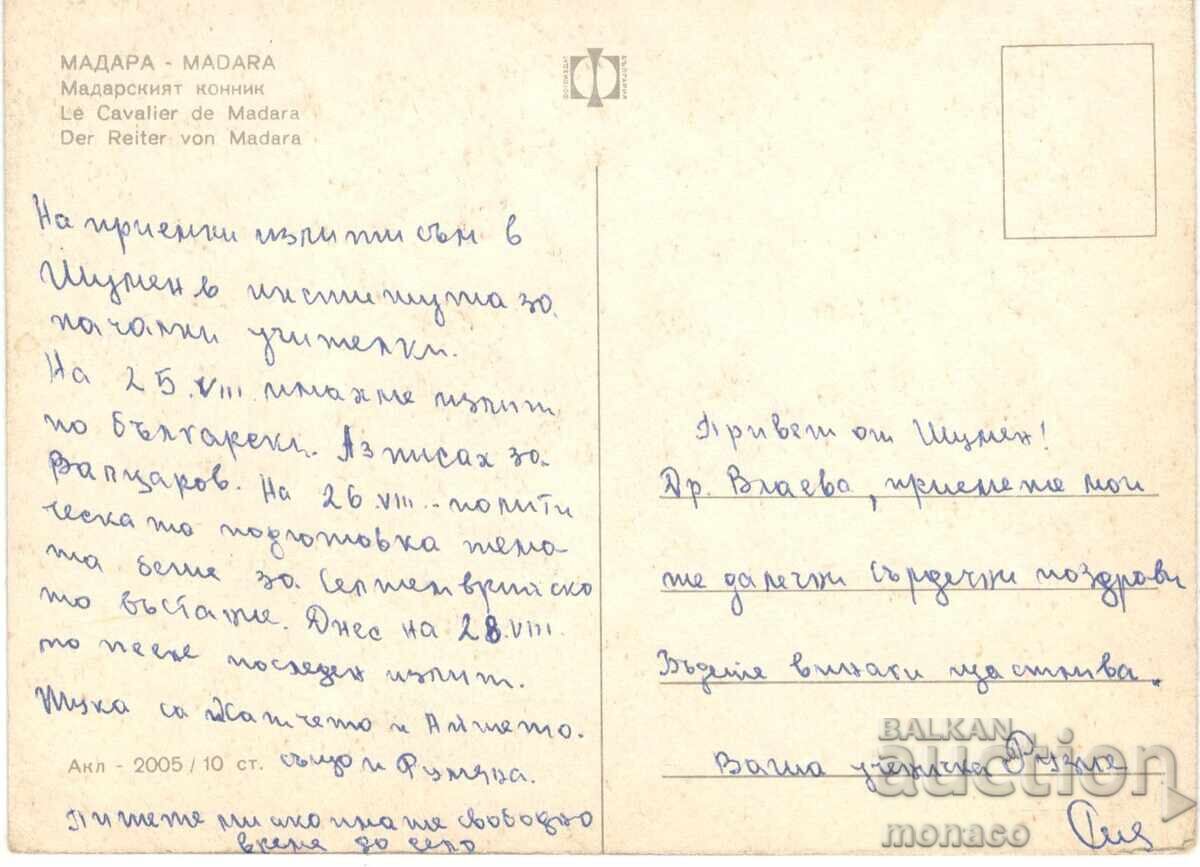 МАДАРА - MADARA
Мадарският конник
Le Cavalier de Madara
Der Reiter von Madara
ФОТОИЗДАТ
БЪЛГАРИЯ
На приемни изпити съм в
Шумен в института за
начални учителки.
На 25.VIII имахме изпит
по български. Аз писах за
Вапцаров. На 26.VIII. полити
ческата подготовка тема-
та беше за Септемврийско
то въстание. Днес на 28.VIII.
по пеене последен изпит.
Тука са и Айшето.
също и Румяна.
Пишете ми ако имате свободно
време до село
Акл - 2005/10 ст.
Привет от Шумен!
Др. Влаева, приемете мои
те далечни сърдечни поздрави
Бъдете винаги щастлива.
Ваша ученичка
BALKAN
auction
monaco